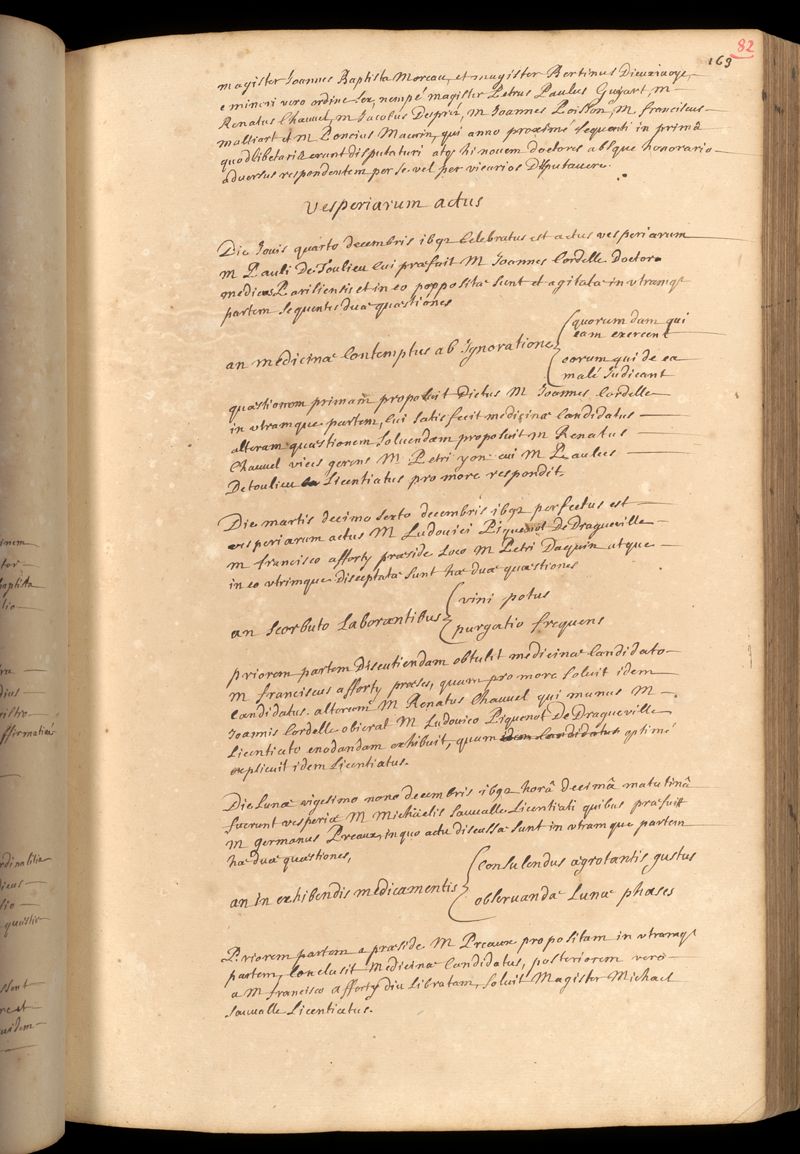 82
163
magister Joannes Baptista Moreau, et magister Bertinus Dieuxivoye,
e minori vero ordine sex, nempé magister Petrus Paulus Guyart, m
Renatus Chauuel, m Jacobus Desprez, m Joannes Poisson, M. franciscus
maltiort et m Poncius Maurin, qui anno proxime sequenti in primâ
quodlibetariâ erunt disputaturi atq; hi nouem doctores absque honorario
aduersus respondentem per se vel per vicarios disputauere.
Vesperiarum actus
Die Jouis quarto decembris 1692 Celebratus est actus vesperiarum
m Pauli De Toulieu cui præfuit M Joannes Cordelle Doctor
medicus Parisiensis et in eo propositæ sunt et agitatæ in vtramq;
partem sequentes duæ quæstiones
an medicinæ Contemptus ab Ignoratione
quorumdam qui
eam exercent
eorum qui de ea
malè Judicant
quæstionem primam proposuit Dictus M Joannes Cordelle
in vtramque partem, cui satisfecit medicinæ Candidatus
alteram quæstionem soluendam proposuit M Renatus
Chauuel vices gerens M Petri yon cui M Paulus
Detoulieu Licentiatus pro more respondit.
Die martis decimo sexto decembris 1692 perfectus est
vesperiarum actus M Ludouici Piquenot De Dragueville
m francisco afforty præside loco M Petri Daquin atque
in eo vtrimque Disceptatæ sunt hæ duæ quæstiones
an scorbuto Laborantibus
vini potus
purgatio frequens
priorem partem Discutiendam obtulit medicinæ Candidato
m franciscus afforty præses, quam pro more soluit idem
Candidatus. alteram M Renatus Chauuel qui munus M
Joannis Cordelle obierat M Ludouico Piquenot De Dragueville
Licentiato enodandam exhibuit, quam idem Candidatus optimé
explicuit idem Licentiatus.
Die Lunæ vigesimo nono decembris 1692 horâ decimâ matutinâ
fuerunt vesperiæ M Michäelis Sauualle Licentiati quibus præfuit
m germanus Preaux, in quo actu discussæ sunt in vtramque partem
hæ duæ quæstiones,
an in exhibendis medicamentis
Consulendus ægrotantis gustus
obseruandæ Lunæ phases
Priorem partem a præside M Preaux propositam in vtramq;
partem, Conclusit Medicinæ Candidatus, posteriorem vero
a M francisco afforty diu libratam, soluit Magister Michael
Sauualle Licentiatus.